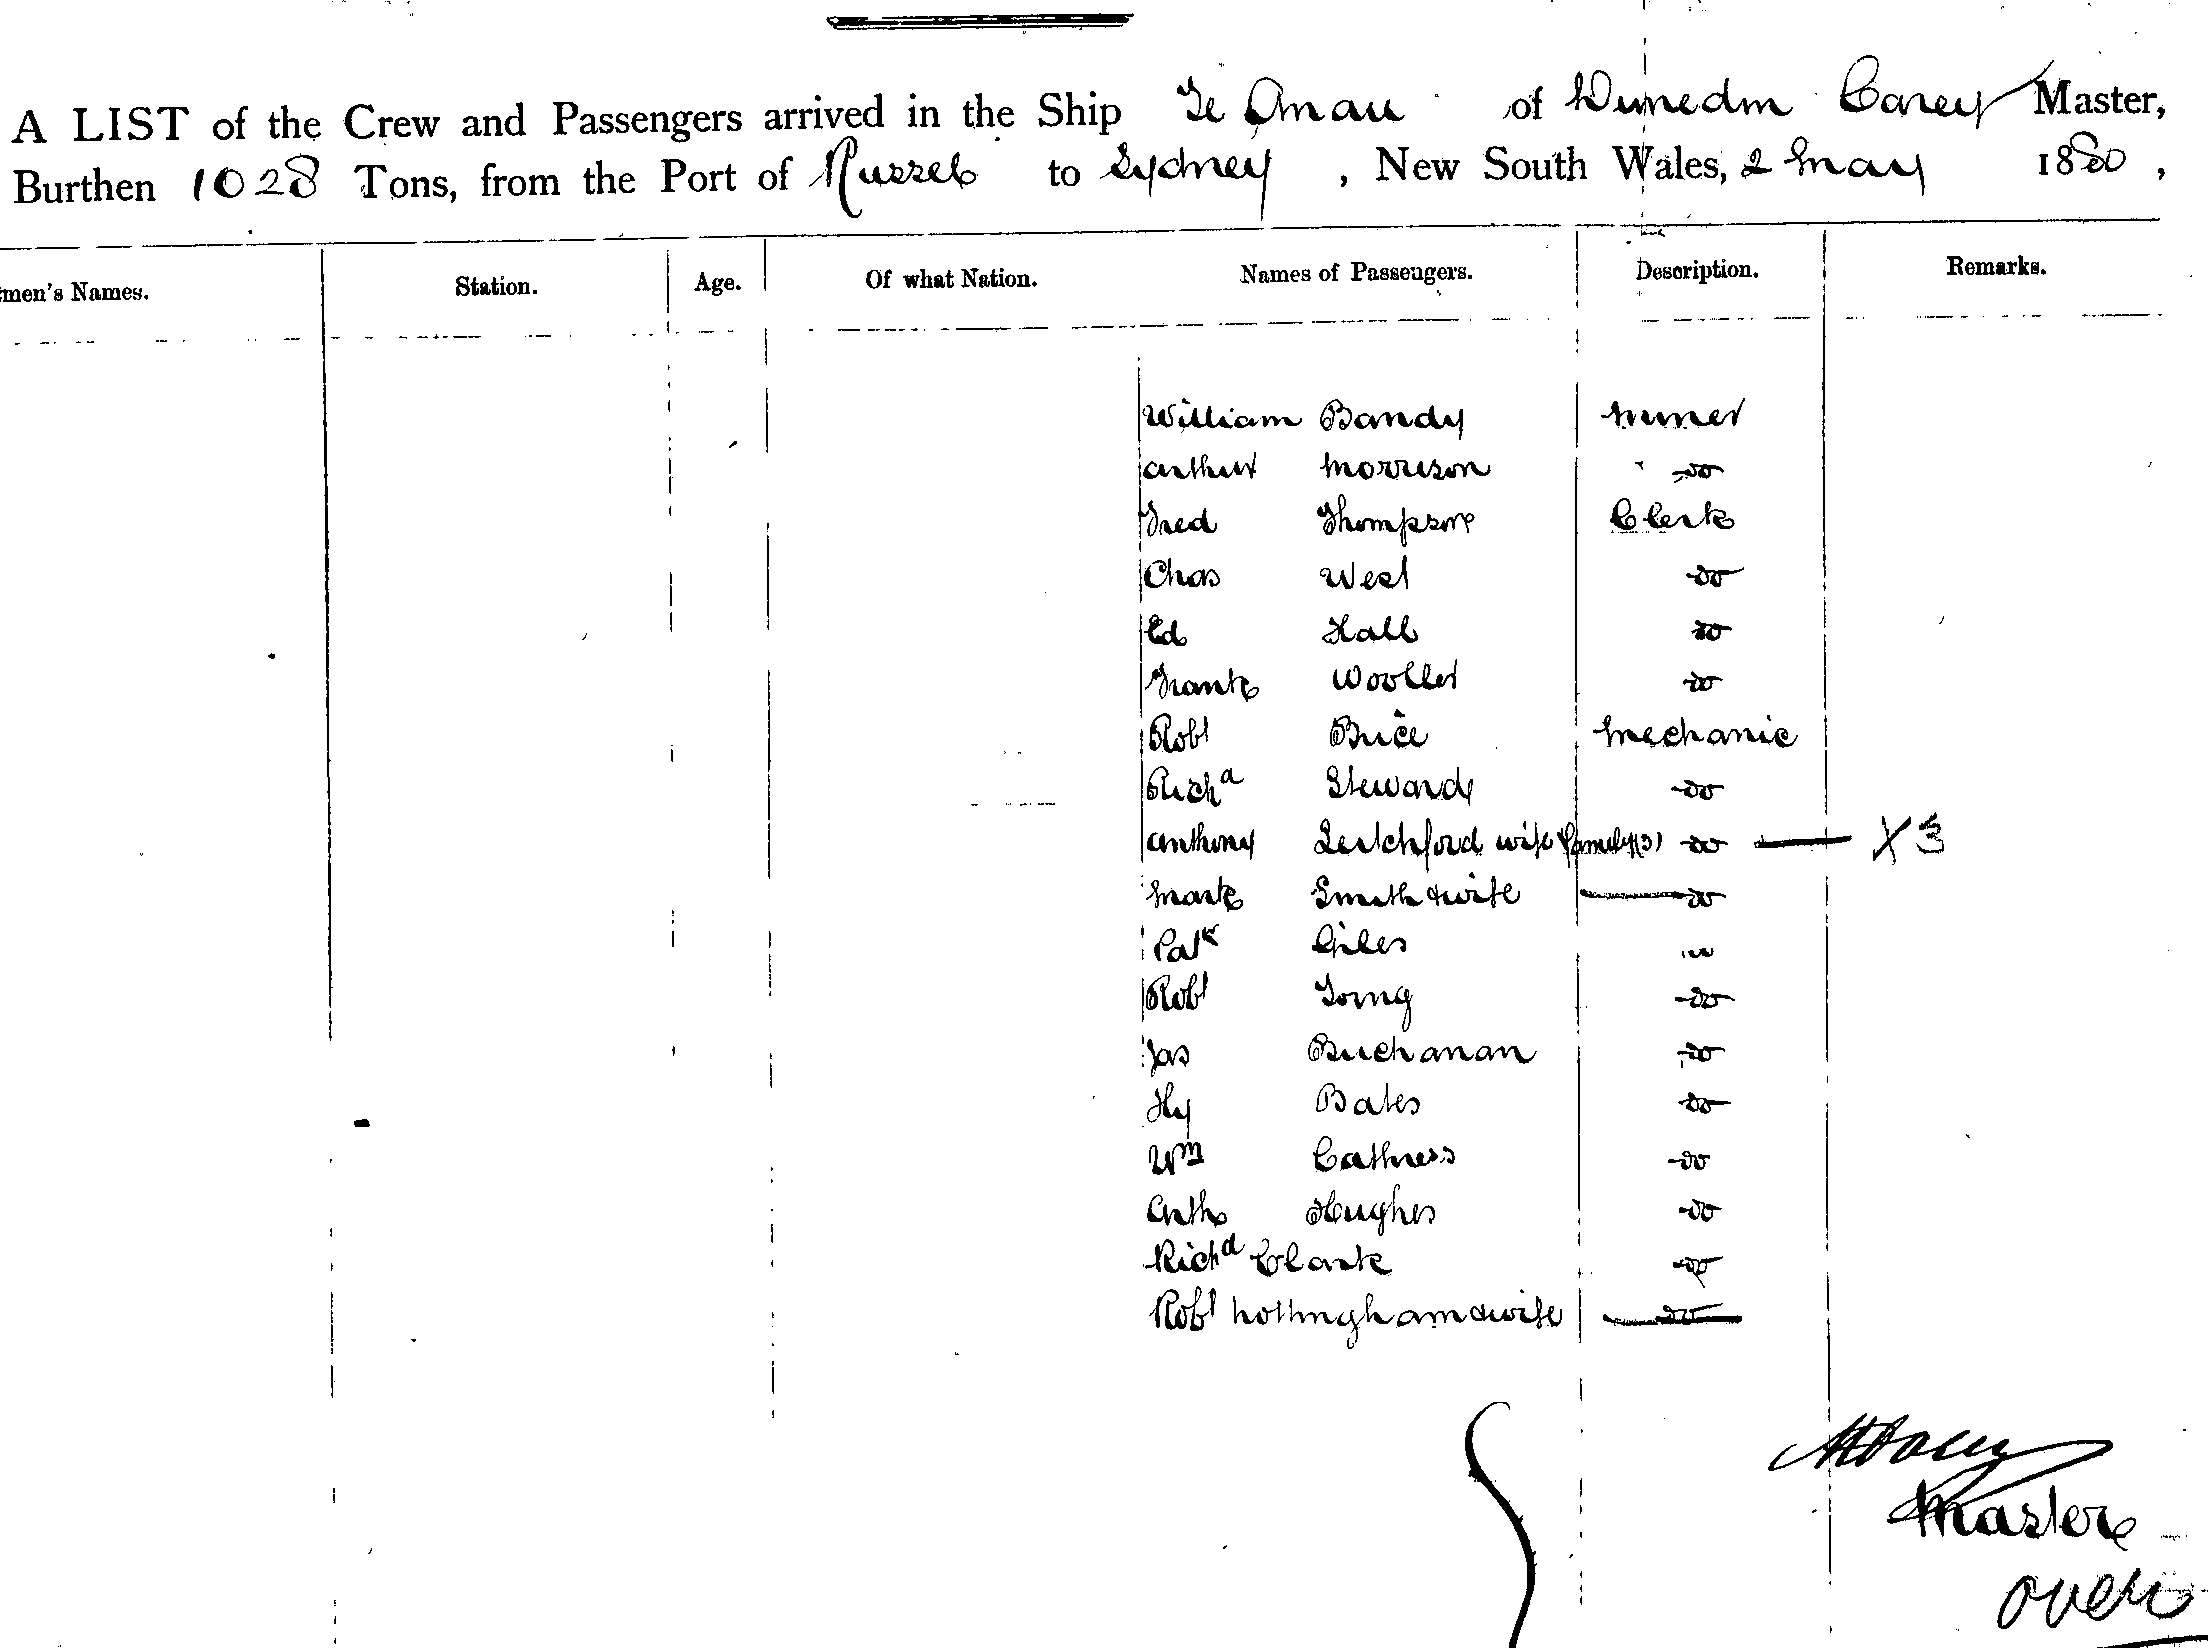 A LIST of the Crew and Passengers arrived in the Ship Te Anau of Dunedin Carey Master,
Burthen 1028 Tons, from the Port of Russel to Sydney, New South Wales, 2 May 1880,
men's Names. Station. Age. Of what Nation. Names of Passengers. Description. Remarks.
William Bandy Miner
Arthur Morrison do
Fred Thompson Clerk
Chas West do
Ed Hall do
Frank Wooller do
Robt Brice Mechanic
Richd Steward do
Anthony Letchford wife & family (3) do X 3
Mark Smith & wife do
Patk Giles do
Robt Long do
Jas Buchanan do
Hy Bates do
Wm Cathness do
Arth Hughes do
Richd Clark do
Robt Nottingham & wife do
Carey
Master
over